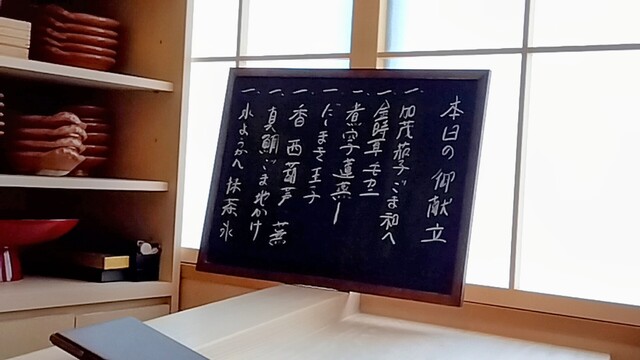 本日の御献立
一、加茂茄子ごま和へ
一、金時草モズク
一、煮穴子蓮蒸し
一、だしまき玉子
一、香 西葫芦 蕪
一、真鯛ごま地かけ
一、水ようかん 抹茶氷